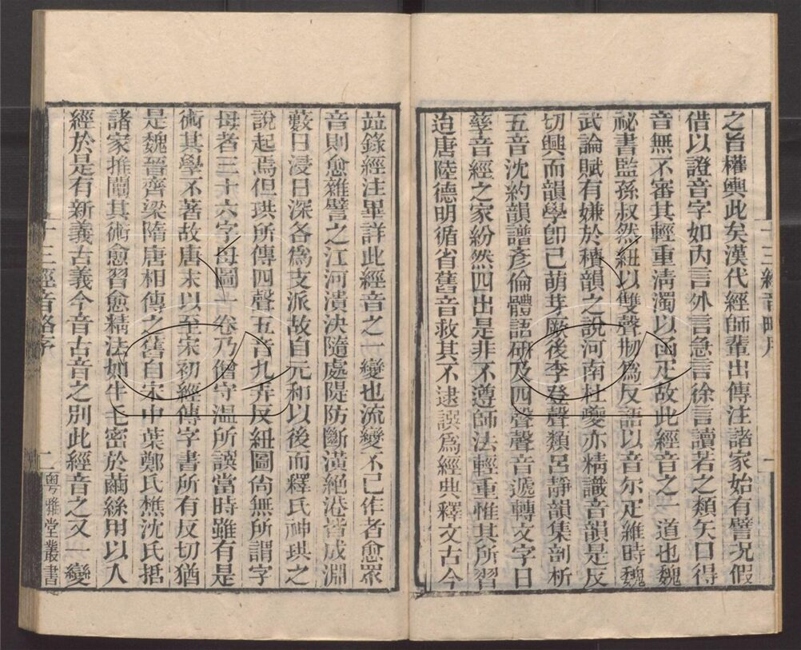 之旨權輿此矣漢代經師輩出傳注諸家始有譬況假
借以證音字如內言外言急言徐言讀若之類矢口得
音無不審其輕重清濁以函疋故此經音之一道也魏
祕書監孫叔然紐以雙聲刱爲反語以音尔疋維時魏
武論賦有嫌於積韻之說河南杜夔亦精識音韻是反
切興而韻學卽已萌芽厥後李登聲類呂靜韻集剖析
五音沈約韻譜彥倫體語研及四聲聲音遞轉文字日
孳音經之家紛然四出是非不遵師法輕重惟其所習
迨唐陸德明循省舊音救其不逮譔爲經典釋文古今
十三經音略序
一
竝錄經注畢詳此經音之一變也流變不已作者愈眾
音則愈雜譬之江河潰決隨處隄防斷潢絕港皆成淵
藪日浸日深各爲支派故自元和以後而釋氏神珙之
說起焉但珙所傳四聲五音九弄反紐圖尙無所謂字
母者三十六字母圖一卷乃僧守溫所譔當時雖有是
術其學不著故唐末以至宋初經傳字書所有反切猶
是魏晉齊梁隋唐相傳之舊自宋中葉鄭氏樵沈氏括
諸家推闡其術愈習愈精法如牛毛密於繭絲用以入
經於是有新義古義今音古音之別此經音之又一變
十三經音略序
二
粵雅堂叢書